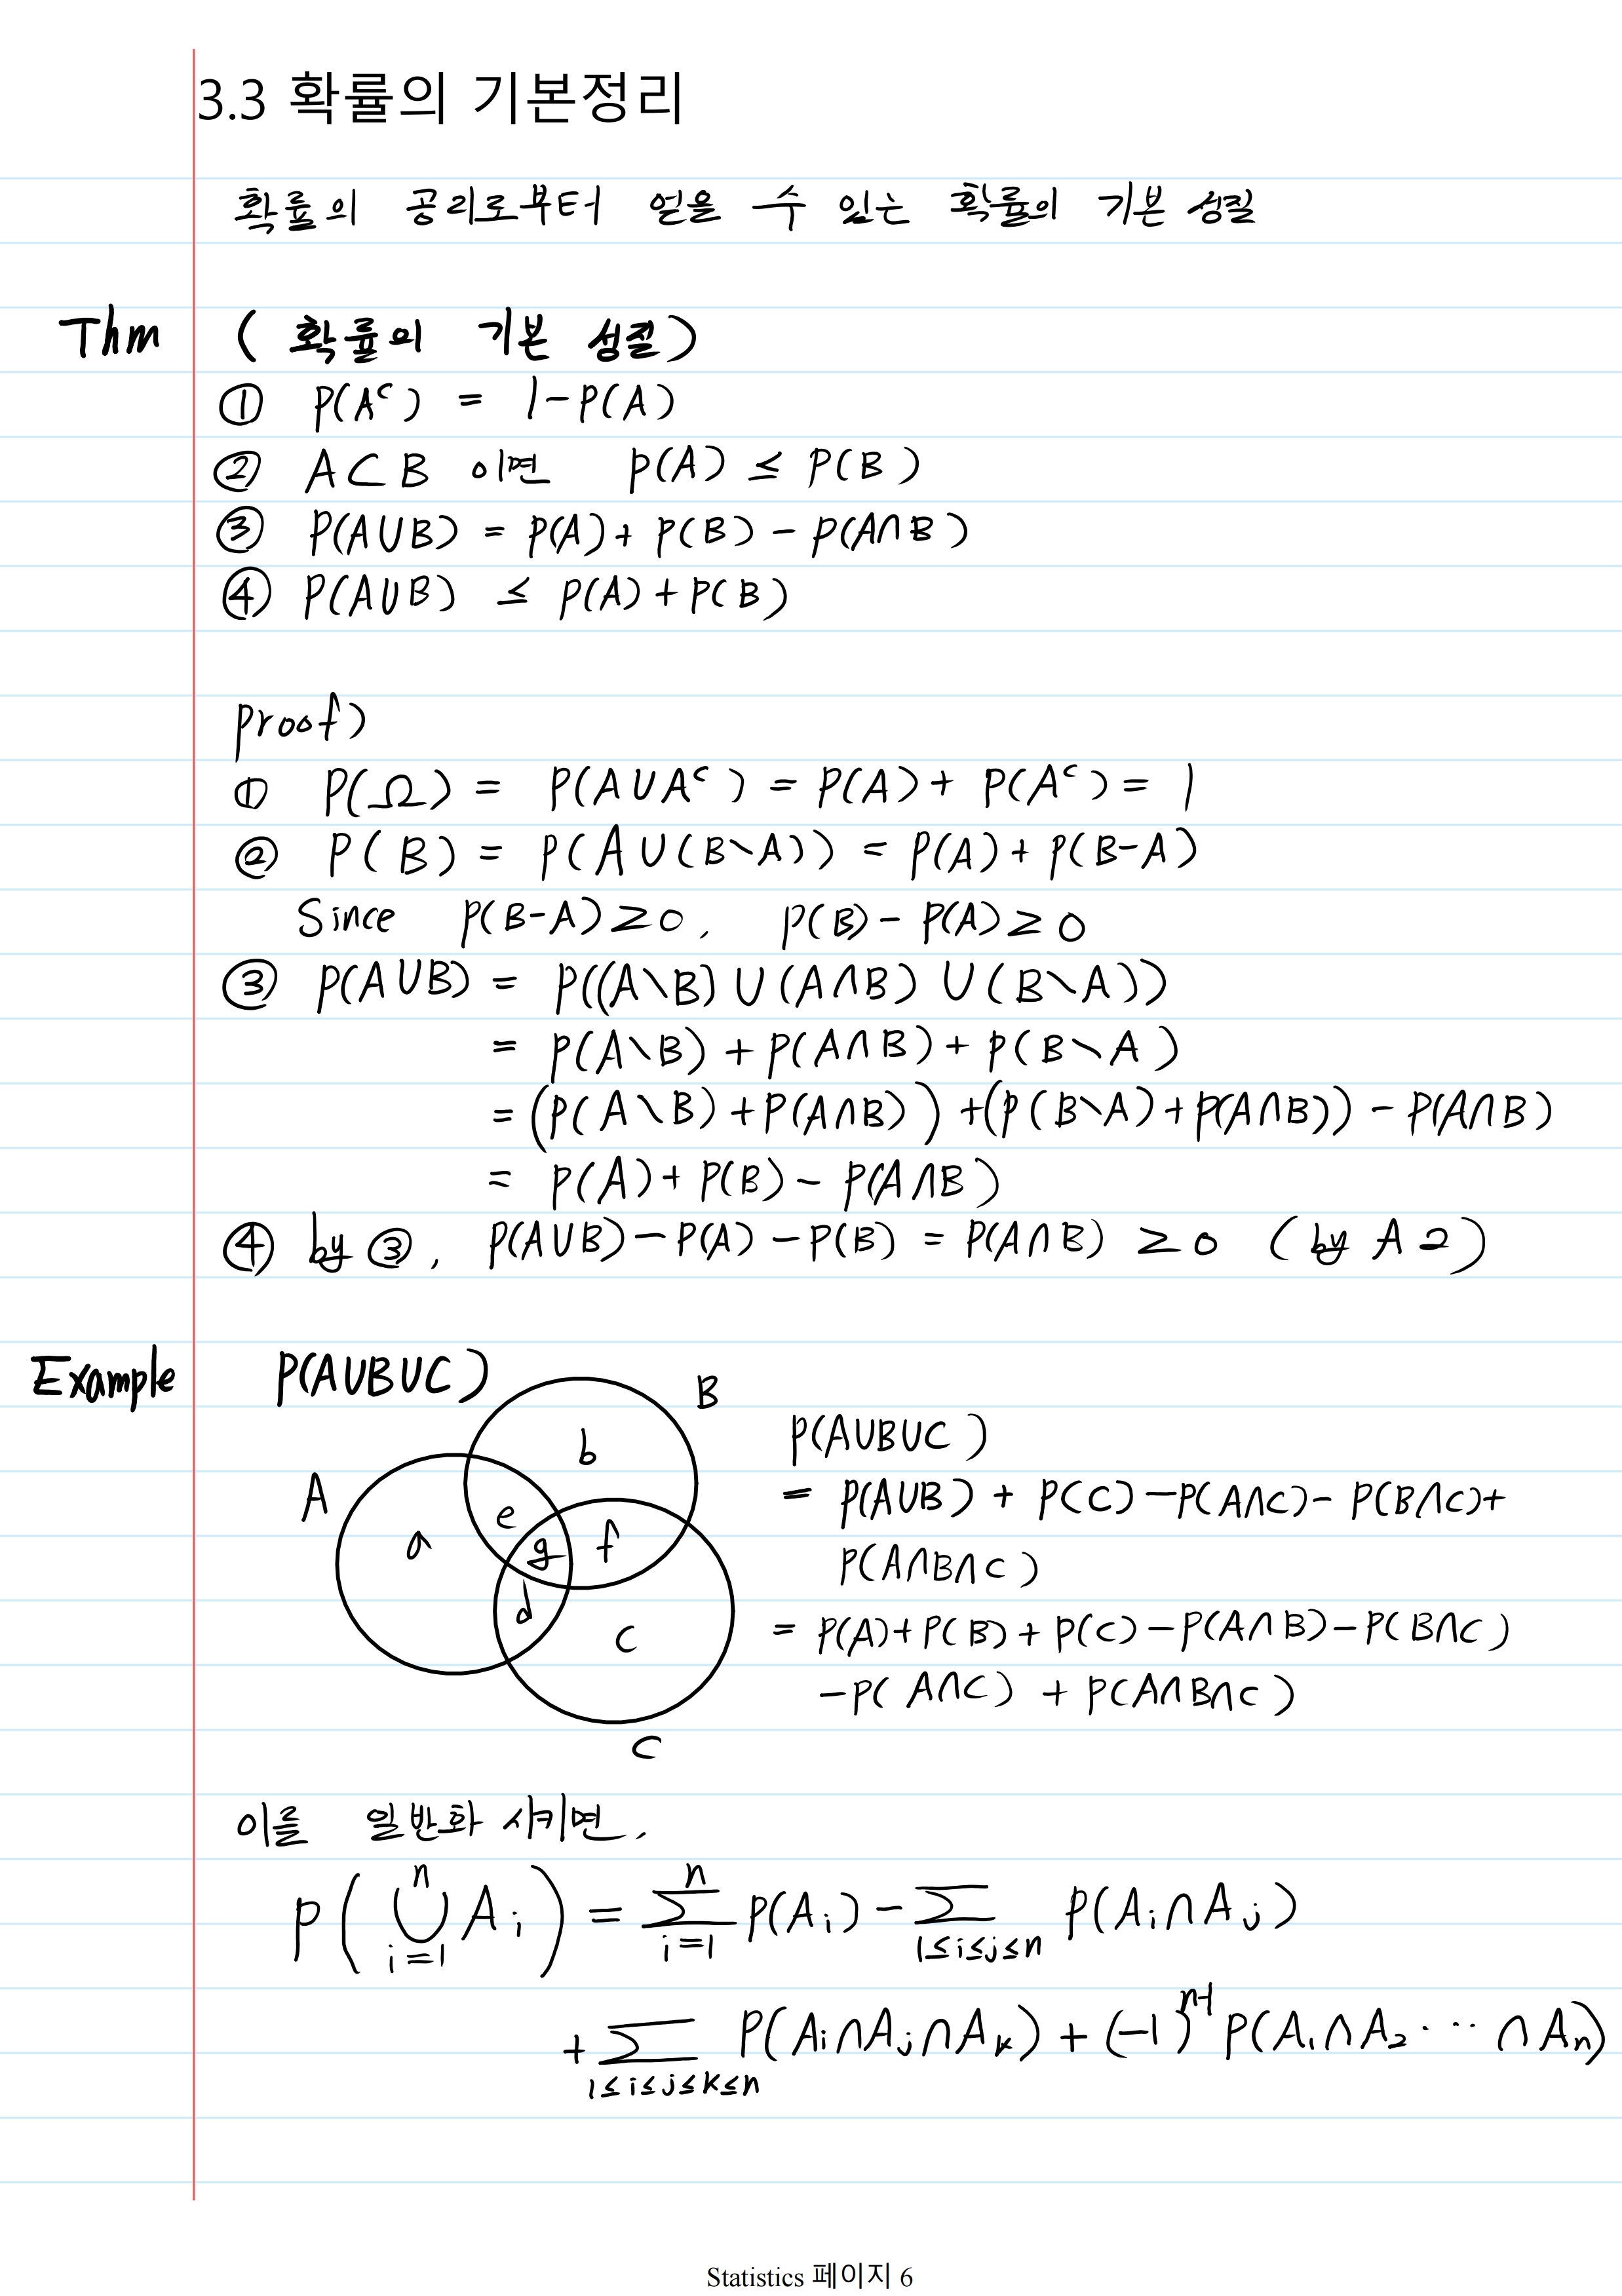 3.3 확률의 기본정리
확률의 공리로부터 얻을 수 있는 확률의 기본 성질
Thm (확률의 기본 성질)
① P(Aᶜ) = 1-P(A)
② A⊂B 이면 P(A) ≤ P(B)
③ P(A∪B) = P(A)+P(B)-P(A∩B)
④ P(A∪B) ≤ P(A)+P(B)
proof)
① P(Ω) = P(A∪Aᶜ) = P(A)+P(Aᶜ) = 1
② P(B) = P(A∪(B∖A)) = P(A)+P(B-A)
Since P(B-A)≥0, P(B)-P(A)≥0
③ P(A∪B) = P((A∖B)∪(A∩B)∪(B∖A))
= P(A∖B)+P(A∩B)+P(B∖A)
=(P(A∖B)+P(A∩B))+(P(B∖A)+P(A∩B))-P(A∩B)
= P(A)+P(B)-P(A∩B)
④ by ③, P(A∪B)-P(A)-P(B) = P(A∩B) ≥0 (by A2)
Example P(A∪B∪C)
B
b
A
a
e
g
f
d
c
C
P(A∪B∪C)
= P(A∪B)+P(C)-P(A∩C)-P(B∩C)+
P(A∩B∩C)
= P(A)+P(B)+P(C)-P(A∩B)-P(B∩C)
-P(A∩C)+P(A∩B∩C)
이를 일반화 시키면,
P(⋃ⁿᵢ₌₁ Aᵢ) = ∑ⁿᵢ₌₁ P(Aᵢ) - ∑_{1≤i≤j≤n} P(Aᵢ∩Aⱼ)
+ ∑_{1≤i≤j≤k≤n} P(Aᵢ∩Aⱼ∩Aₖ) + (-1)ⁿ⁻¹ P(A₁∩A₂⋯∩Aₙ)
Statistics 페이지 6